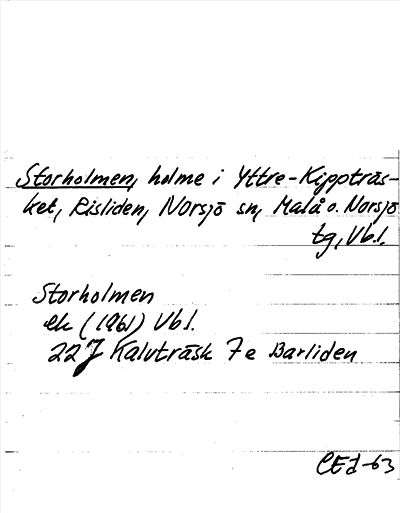 Storholmen, holme i Yttre-Kippträs-
ket, Risliden, Norsjö sn, Malå o. Norsjö
tg, Vb.l.
Storholmen
ek (1961) Vbl.
22 J Kalvträsk 7e Barliden
CEd -63